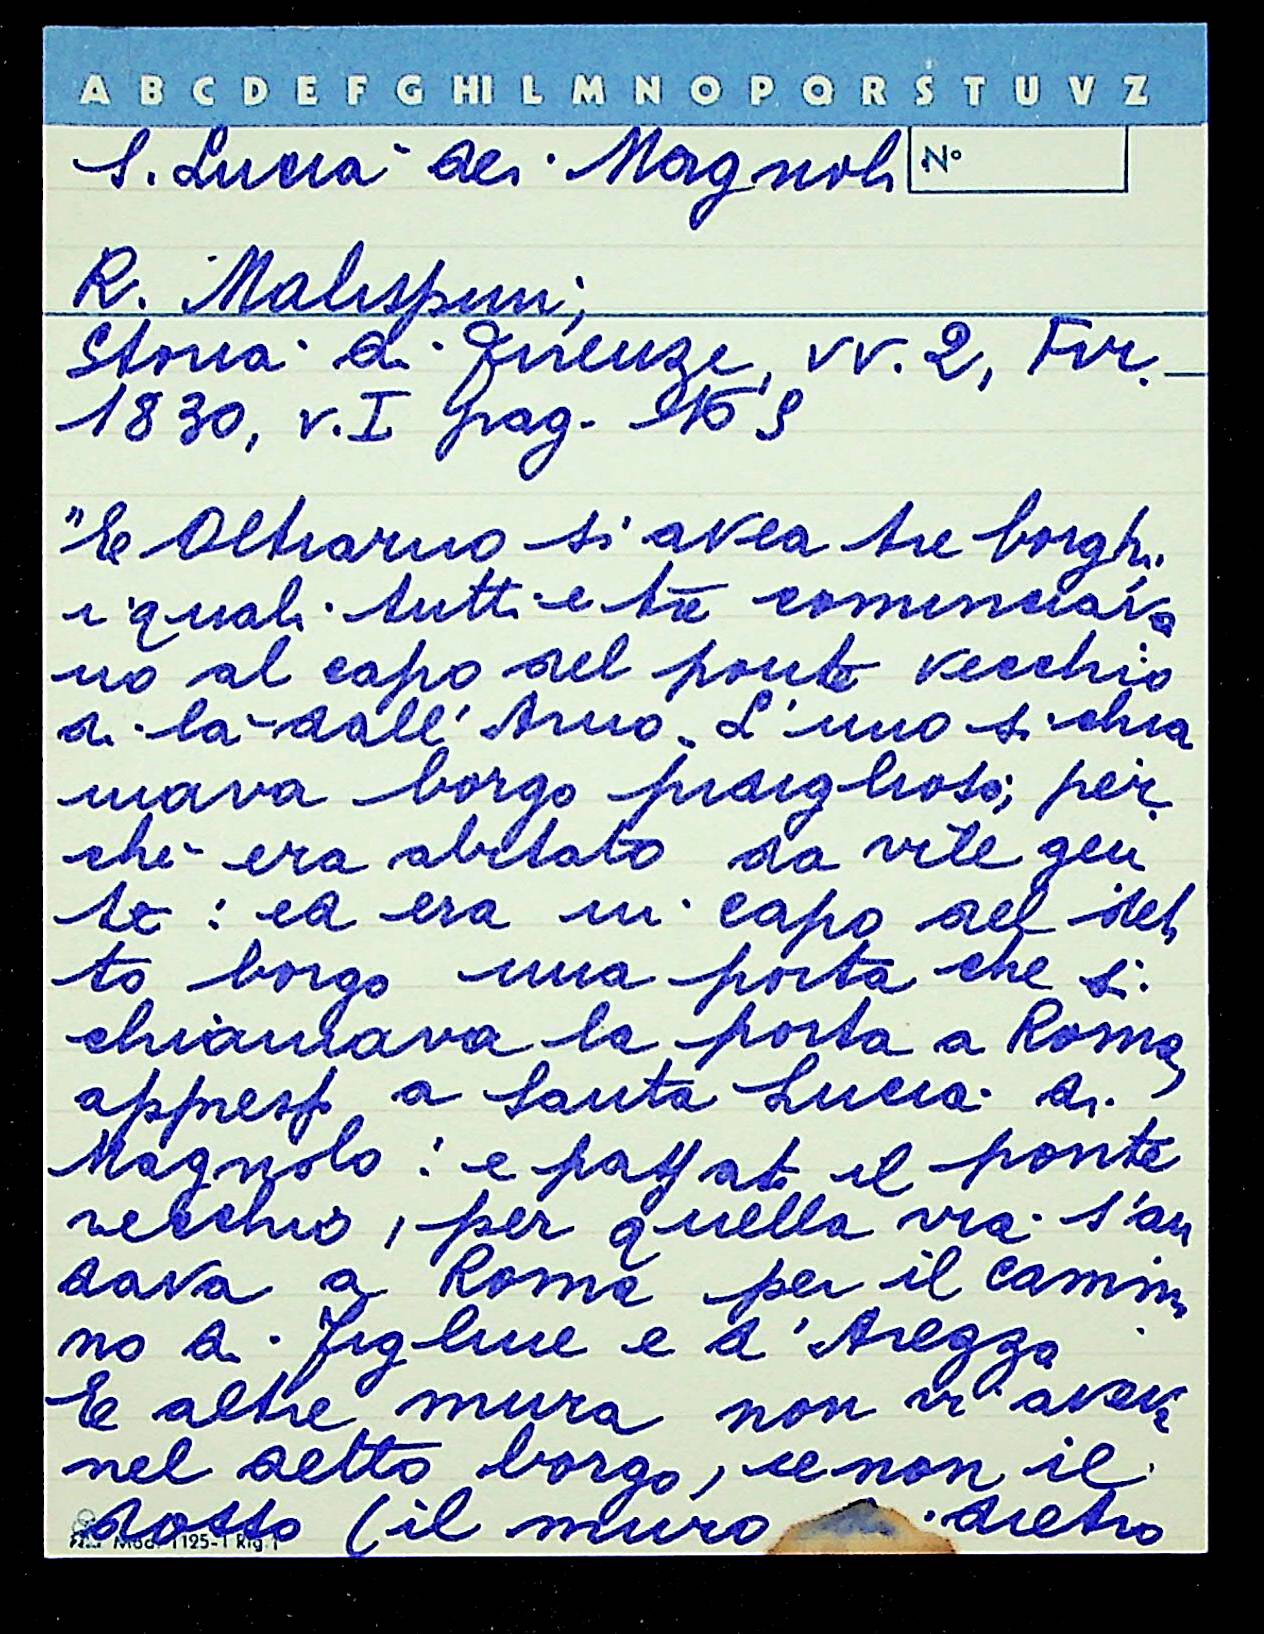 A B C D E F G HI L M N O P Q R S T U V Z
S. Lucia dei Magnoli
N°
R. Malispini,
Storia di Firenze, vv. 2, Fir.
1830, v. I pag.
"E Oltrarno si avea tre borghi
i quali tutti e tre cominciava
no al capo del ponte vecchio
di là dall'Arno. L'uno si chia
mava borgo pidiglioso; per
chè era abitato da vile gen
te: ed era in capo del det
to borgo una porta che si
chiamava la porta a Roma,
appresso a Santa Lucia di
Magnolo: e passato il ponte
vecchio, per quella via s'an
dava a Roma per il cammi
no di Figline e d'Arezzo
E altre mura non vi avea
nel detto borgo, se non il
dosso (il muro di dietro
Mod. 1125-1 Rig. 1